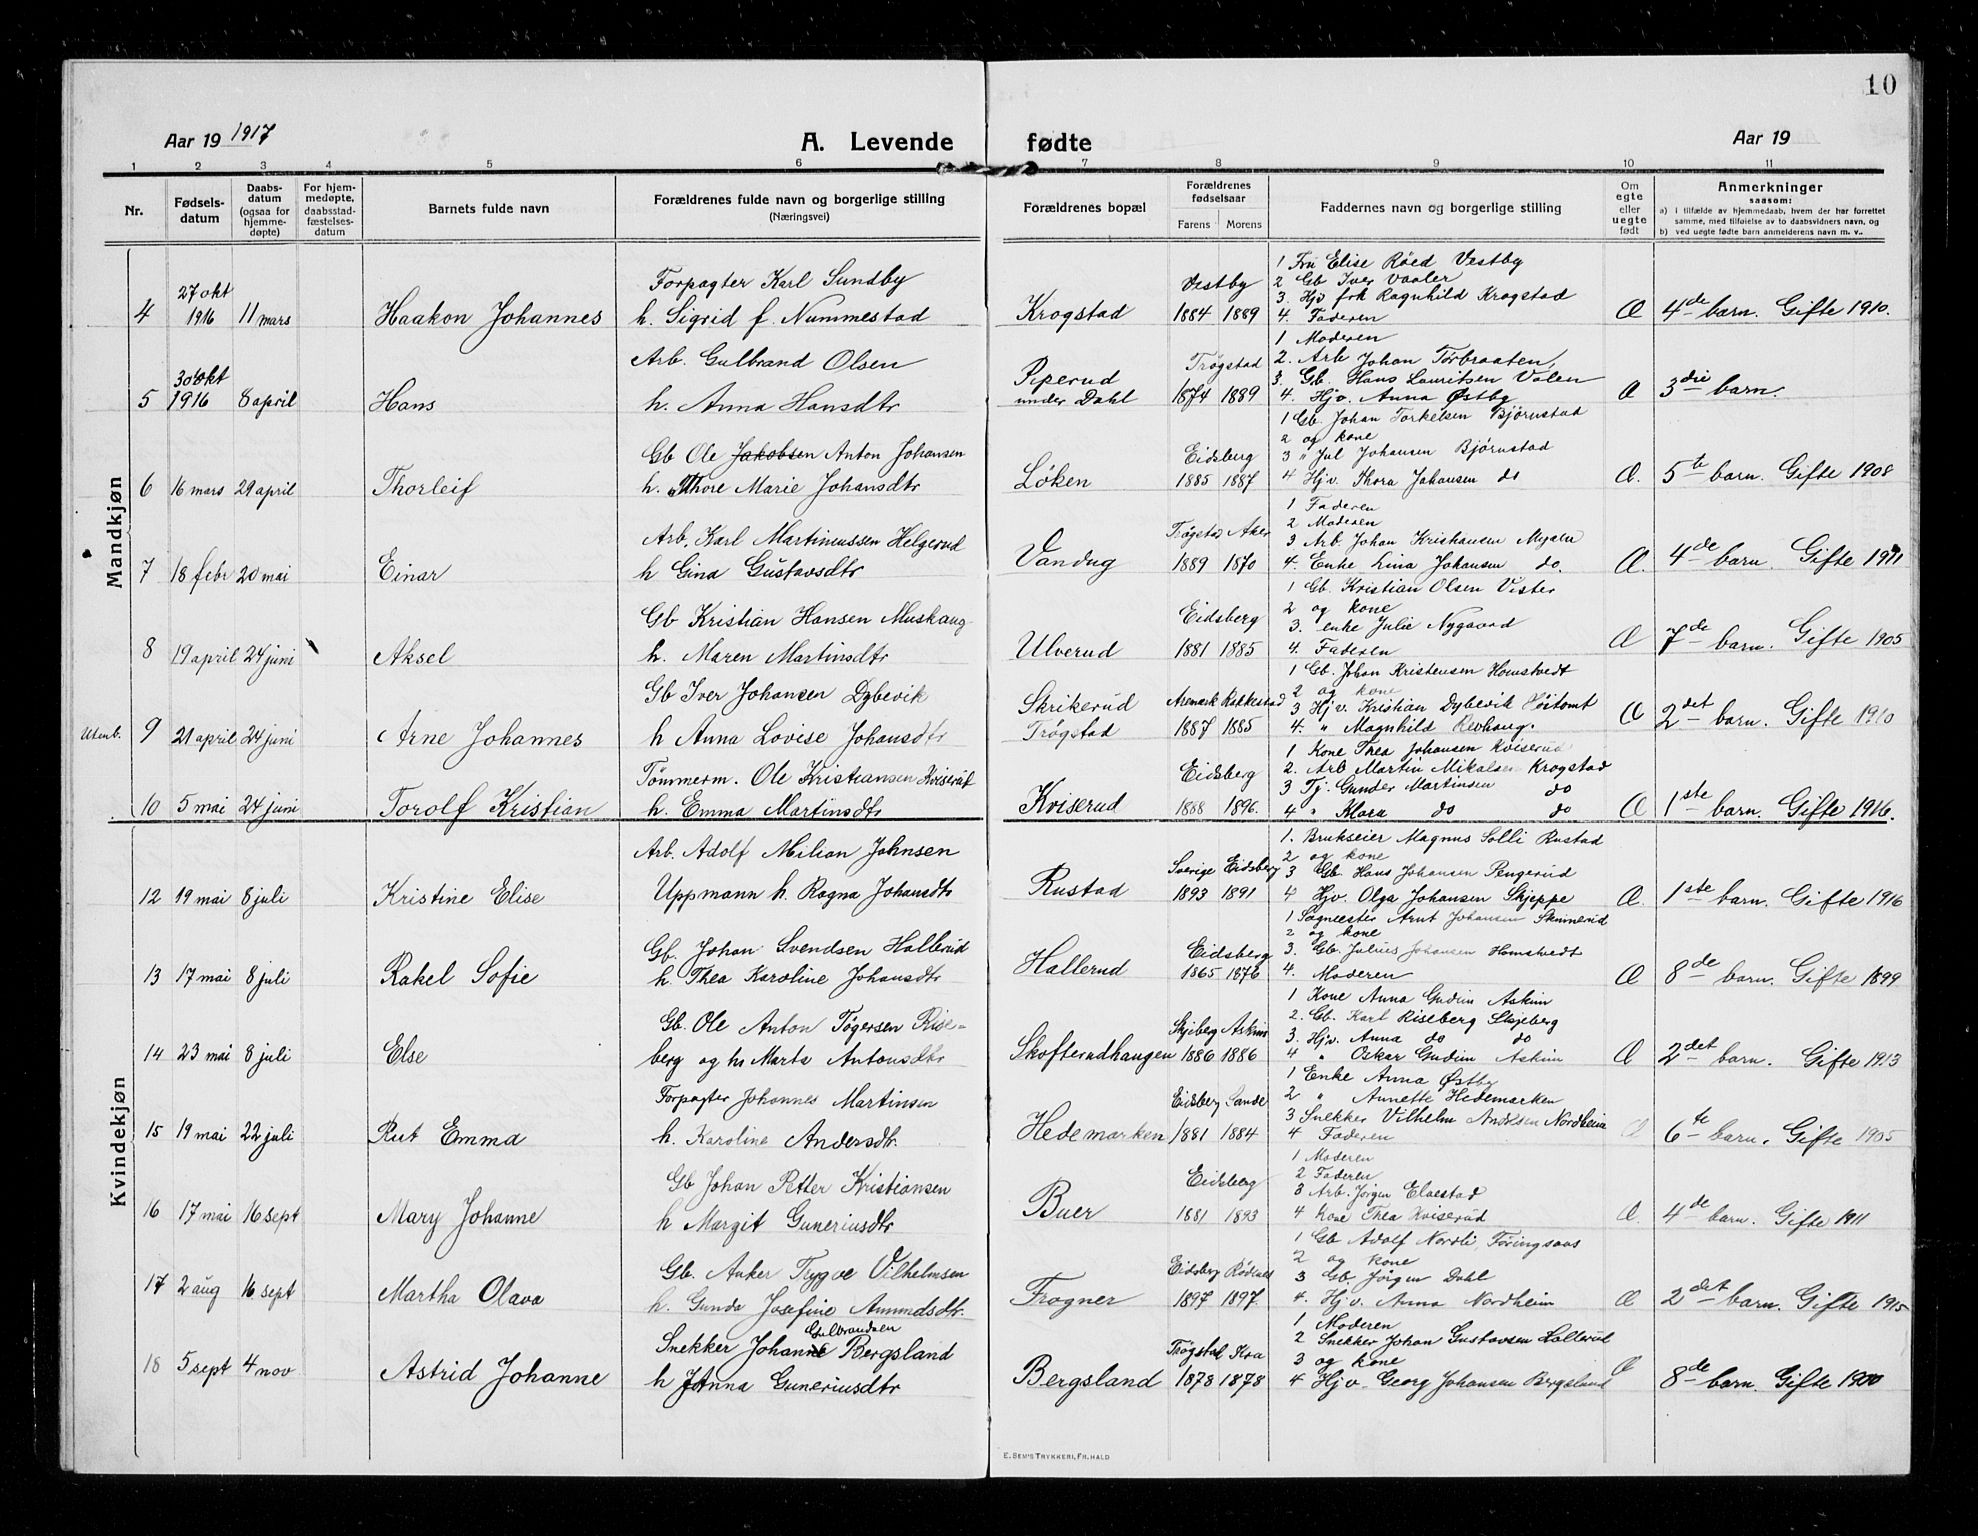 10
Aar 19 1917
A. Levende fødte
Aar 19
1 2 3 4 5 6 7 8 9 10 11
Nr.
Fødsels-
datum
Daabs-
datum
(ogsaa for
hjemme-
døpte)
For hjem-
medøpte,
daabsstad-
fæstelses-
datum
Barnets fulde navn
Forældrenes fulde navn og borgerlige stilling
(Næringsvei)
Forældrenes bopæl
Forældrenes
fødselsaar
Farens Morens
Faddernes navn og borgerlige stilling
Om
egte
eller
uegte
født
Anmerkninger
saasom:
a) I tilfælde av hjemmedaab, hvem der har forrettet
samme, med tilføielse av to daabsvidners navn, og
b) ved uegte fødte barn anmelderens navn m. v..
Mandkjøn
4 27 okt 1916 11 mars Haakon Johannes
Forpagter Karl Sundby
h. Sigrid f. Nummestad
Krogstad
Vestby
1884 1889
1 Fru Elise Røed Vestby
2 Gb Iver Vaaler
3. Hjv frk Ragnhild Krogstad
4. Faderen
Æ 4de barn. Gifte 1910.
5 30 okt 1916 8 april Hans
Arb. Gulbrand Olsen
h. Anna Hansdtr
Piperud
under Dahl
Trøgstad
1874 1889
1 Moderen
2. Arb Johan Torbraaten,
3. Gb. Hans Lauritsen Valen
4. Hjv. Anna Østby
Æ 3die barn.
6 16 mars 29 april Thorleif
Gb Ole Jakobsen Anton Johansen
h. Thore Marie Johansdtr
Løken
Eidsberg
1885 1887
1 Gb. Johan Torkelsen Bjørnstad
2 og kone
3 " Jul Johansen Bjørnstad
4 Hjv. Thora Johansen do
Æ. 5te barn. Gifte 1908
7 18 febr 20 mai Einar
Arb. Karl Martinussen Helgerud
h Gina Gustavsdtr
Vandug
Trøgstad Aker
1889 1870
1 Faderen
2 Moderen
3 Arb. Johan Kristiansen
4. Enke Lina Johansen do.
Æ. 4de barn. Gifte 1911
8 19 april 24 juni Aksel
Gb Kristian Hansen Muskaug
h. Maren Martinsdtr
Ulverud
Eidsberg
1881 1885
1 Gb. Kristian Olsen Vister
2 og kone
3. enke Julie Nygaard
4. Faderen
Æ 7de barn. Gifte 1905
Utenb. 9 21 april 24 juni Arne Johannes
Gb Iver Johansen Dybevik
h Anna Lovise Johansdtr
Skrikerud
Trøgstad
Aremark Rakkestad
1887 1885
1 Gb. Johan Kristensen Homstvedt
2 og kone
3 Hjv. Kristian Dybevik Høitomt
4. " Magnhild Revhaug.
Æ 2det barn. Gifte 1910
10 5 mai 24 juni Torolf Kristian
Tømmerm. Ole Kristiansen Kviserud
h. Emma Martinsdtr
Kviserud
Eidsberg
1888 1896.
1 Kone Thea Johansen Kviserud
2. Arb Martin Mikalsen Krogstad
3 Tj. Gunder Martinsen do
4 " Mara do do
Æ 1ste barn. Gifte 1916.
Kvindekjøn
12 19 mai 8 juli Kristine Elise
Arb. Adolf Milian Johnsen
Uppmann h. Ragna Johansdtr
Rustad
Sverige Eidsberg
1893 1891
1. Brukseier Magnus Solli Rustad
2 og kone
3 Gb Hans Johansen Pengerud
4 Hjv. Olga Johansen Skjeppe
Æ. 1ste barn. Gifte 1916
13 17 mai 8 juli Rakel Sofie
Gb. Johan Svendsen Hallerud
h. Thea Karoline Johansdtr
Hallerud
Eidsberg
1865 1876
1 Sogmester Arnt Johansen Skinnerud
2 og kone
3. Gb. Julius Johansen Homstvedt
4. Moderen
Æ 8de barn. Gifte 1899
14 23 mai 8 juli Else
Gb. Ole Anton Tøgersen Rise=
berg og h. Marta Antonsdtr
Skofterudhaugen
Skjeberg Askim
1886 1886
1 Kone Anna Gudim Askim
2. Gb. Karl Riseberg Skjeberg
3. Hjv. Anna do do
4 " Oskar Gudim Askim
Æ 2det barn. Gifte 1913
15 19 mai 22 juli Rut Emma
Forpagter Johannes Martinsen
h. Karoline Andersdtr.
Hedemarken
Eidsberg Sande
1881 1884
1 Enke Anna Østby
2 " Annette Hedemarken
3 Snekker Vilhelm Andersen Nordheim
4 Faderen
Æ 6te barn. Gifte 1905
16 17 mai 16 sept Mary Johanne
Gb Johan Petter Kristiansen
h Margit Guneriusdtr
Buer
Eidsberg
1881 1893
1 Moderen
2 Faderen
3 Arb. Jørgen Elvestad
4 Kone Thea Kviserud
Æ. 4de barn. Gifte 1911
17 2 aug 16 sept Martha Olava
Gb. Anker Trygve Vilhelmsen
h. Gunda Josefine Amundsdtr.
Frogner
Eidsberg Rødenes
1897 1897.
1 Gb Adolf Nordli, Føringsaas
2 og kone
3 Gb. Jørgen Dahl
4. Hjv. Anna Nordheim
Æ 2det barn. Gifte 1915
18 5 sept 4 nov Astrid Johanne
Gulbrandsen
Snekker Johan Bergsland
h Anna Guneriusdtr
Bergsland
Trøgstad Kra
1878 1878
1 Moderen
2 Snekker Johan Gustavsen Lallerud
3 og kone
4 Hjv. Georg Johansen Bergsland
Æ 8de barn. Gifte 1900
E. Sem's Trykkeri, Fr.hald